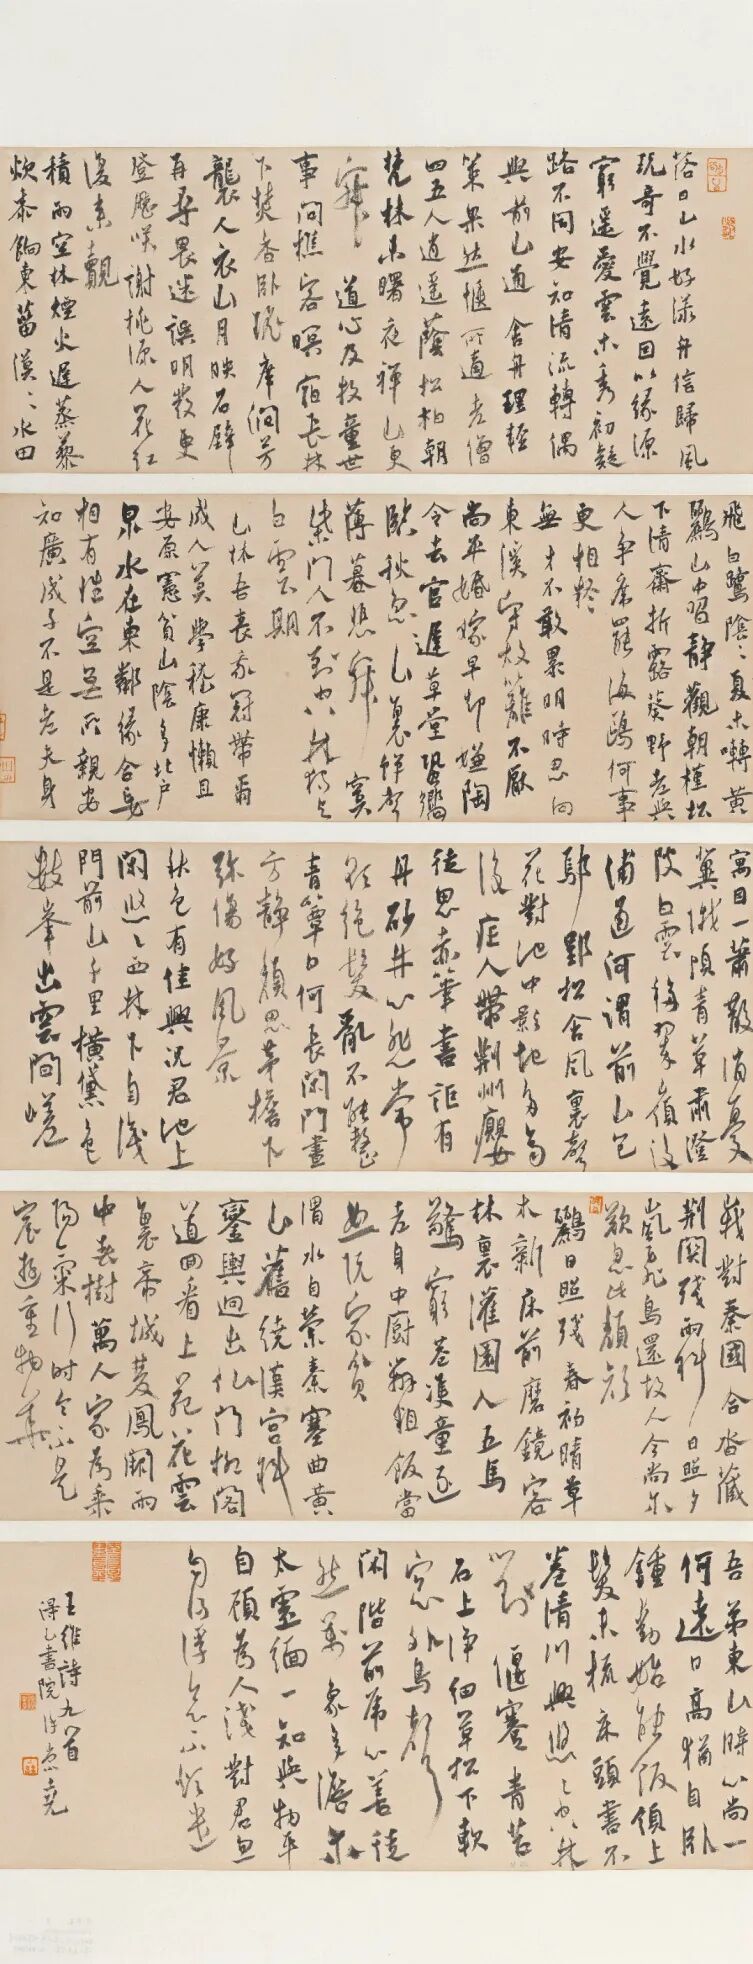 落日山水好漾舟信歸風
玩奇不覺遠因以緣源
窮遥愛雲木秀初疑
路不同安知清流轉偶
與前山通舍舟理輕
策果然愜所適老僧
四五人逍遥蔭松柏朝
梵林未曙夜禪山更
寂道心及牧童世
事問樵客暝宿長林
下焚香卧瑶席澗芳
襲人衣山月映石壁
再尋畏迷誤明發更
登歷笑謝桃源人花紅
復來覿
積雨空林煙火遲蒸藜
炊黍餉東菑漠〻水田
飛白鷺陰〻夏木囀黄
鸝山中習靜觀朝槿松
下清齋折露葵野老與
人爭席罷海鷗何事
更相疑
無才不敢累明時思向
東溪守故籬不厭
尚平婚嫁早却嫌陶
令去官遲草堂蛩響
臨秋急山裏蟬聲
薄暮悲寂寞
柴門人不到空林獨與
白雲期
山林吾喪我冠帶爾
成人莫學嵇康懶且
安原憲貧山陰多北户
泉水在東鄰緣合妄
相有性空無所親安
知廣成子不是老夫身
寓目一蕭散消憂
冀俄頃青草肅澄
陂白雲移翠嶺後
浦通河渭前山包
鄢郢松含風裏聲
花對池中影地多齊
後疟人帶荆州癭
徒思赤筆書詎有
丹砂井心悲常
欲絶髮亂不能整
青簟日何長閑門晝
方靜頹思茅檐下
彌傷好風景
秋色有佳興況君池上
閑悠〻西林下自識
門前山千里橫黛色
數峯出雲間嵯
峩對秦國合沓藏
荆關殘雨斜日照夕
嵐飛鳥還故人今尚爾
歎息此頹顔
鸝日照殘春初晴草
木新床前磨鏡客
林裏灌園人五馬
驚窮巷雙童逐
老身中厨辦粗飯當
恕阮家貧
渭水自縈秦塞曲黄
山舊繞漢宮斜
鑾輿迥出仙門柳閣
道迴看上苑花雲
裏帝城雙鳳闕雨
中春樹萬人家爲乘
陽氣行時令不是
宸遊重物華
吾弟東山時心尚一
何遠日高猶自卧
鐘動始能飯領上
髮未梳床頭書不
卷清川興悠〻空林
對偃蹇青苔
石上淨細草松下軟
窗外鳥聲
閑階前虎心善徒
然萬象多澹爾
太虛緬一知與物平
自顧爲人淺對君忽
自得浮念不煩遣
王維詩九首
書院